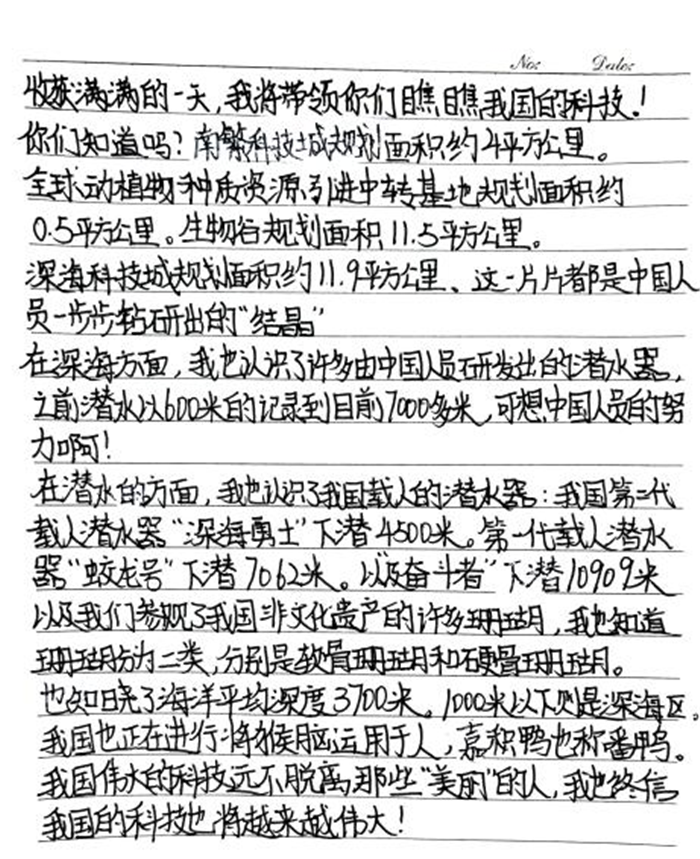 No: Date:
收获满满的一天，我将带领你们瞧瞧我国的科技！
你们知道吗？南繁科技城规划面积约4平方公里。
全球动植物种质资源引进中转基地规划面积约
0.5平方公里。生物谷规划面积11.5平方公里。
深海科技城规划面积约11.9平方公里、这一片片都是中国人
员一步步钻研出的“结晶”
在深海方面，我也认识了许多由中国人员研发出的潜水器，
之前潜水以600米的记录到目前7000多米，可想中国人员的努
力啊！
在潜水的方面，我也认识了我国载人的潜水器：我国第二代
载人潜水器“深海勇士”下潜4500米。第一代载人潜水
器“蛟龙号”下潜7062米。以及“奋斗者”下潜10909米
以及我们参观了我国非文化遗产的许多珊瑚，我也知道
珊瑚分为二类，分别是软骨珊瑚和硬骨珊瑚。
也知晓了海洋平均深度3700米。1000米以下则是深海区。
我国也正在进行将猴脑运用于人，嘉积鸭也称番鸭。
我国伟大的科技远不脱离那些“美丽”的人，我也终信
我国的科技也将越来越伟大！